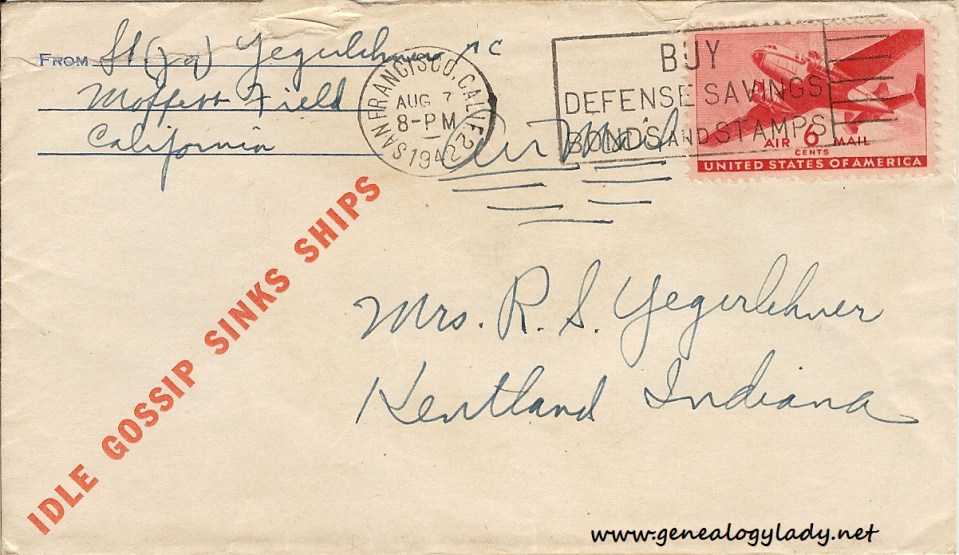 FROM Lt (jg) Yegerlehner MC
Moffett Field
California
SAN FRANCISCO, CALIF.
AUG 7
8-PM
1942
BUY
DEFENSE SAVINGS
BONDS AND STAMPS
AIR 6 MAIL
CENTS
UNITED STATES OF AMERICA
Air Mail
IDLE GOSSIP SINKS SHIPS
Mrs. R. S. Yegerlehner
Kentland Indiana
www.genealogylady.net